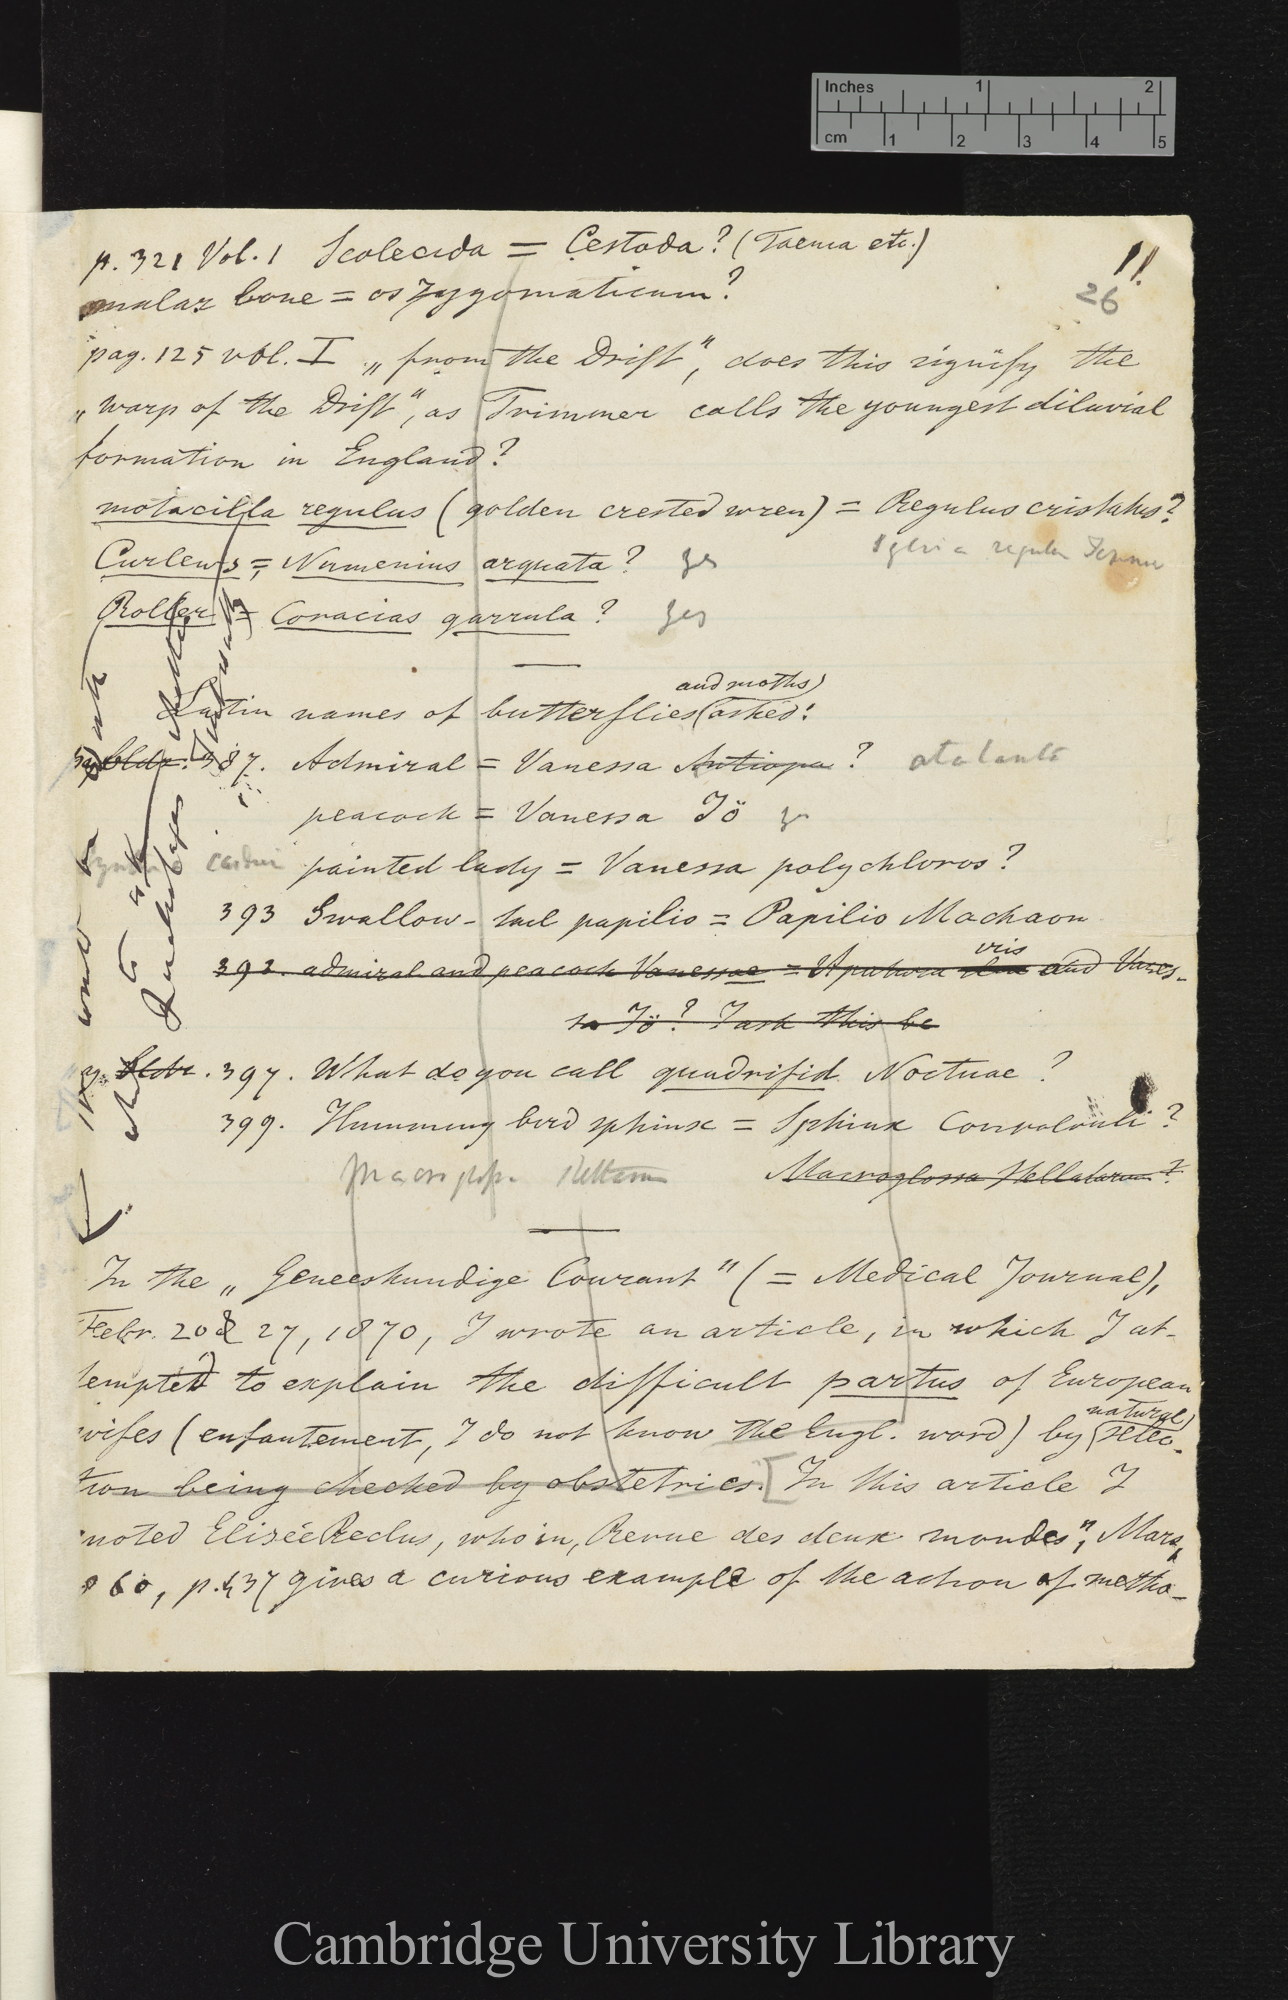 Inches 1 2
cm 1 2 3 4 5
11.
26
p. 321 Vol. 1 Scolecida = Cestoda? (Taenia etc.)
malar bone = os zygomaticum?
pag. 125 vol. I „from the Drift", does this signify the
„warp of the Drift", as Trimmer calls the youngest diluvial
formation in England?
motacilla regulus (golden crested wren) = Regulus cristatus?
Sylvia regulus
Curlews = Numenius arquata? yes
Roller = Coracias garrula? yes
and moths
Latin names of butterflies asked:
387. Admiral = Vanessa Antiopa? atalanta
peacock = Vanessa Jö yes
cardui painted lady = Vanessa polychloros?
393 Swallow-tail papilio = Papilio Machaon
iris
392. admiral and peacock Vanessae = Apatura and Vanes-
sa Jö? I ask this be
397. What do you call quadrifid Noctuae?
399. Humming bird sphinx = Sphinx Convolvuli?
Macroglossa Stellatarum?
In the „Geneeskundige Courant" (= Medical Journal),
Febr. 20 & 27, 1870, I wrote an article, in which I at-
tempted to explain the difficult partus of European
natural
wifes (enfantement, I do not know the Engl. word) by selec-
tion being checked by obstetrics. [In this article I
quoted Elisée Reclus, who in „Revue des deux mondes", Mars
1860, p. 637 gives a curious example of the action of metho-
Cambridge University Library